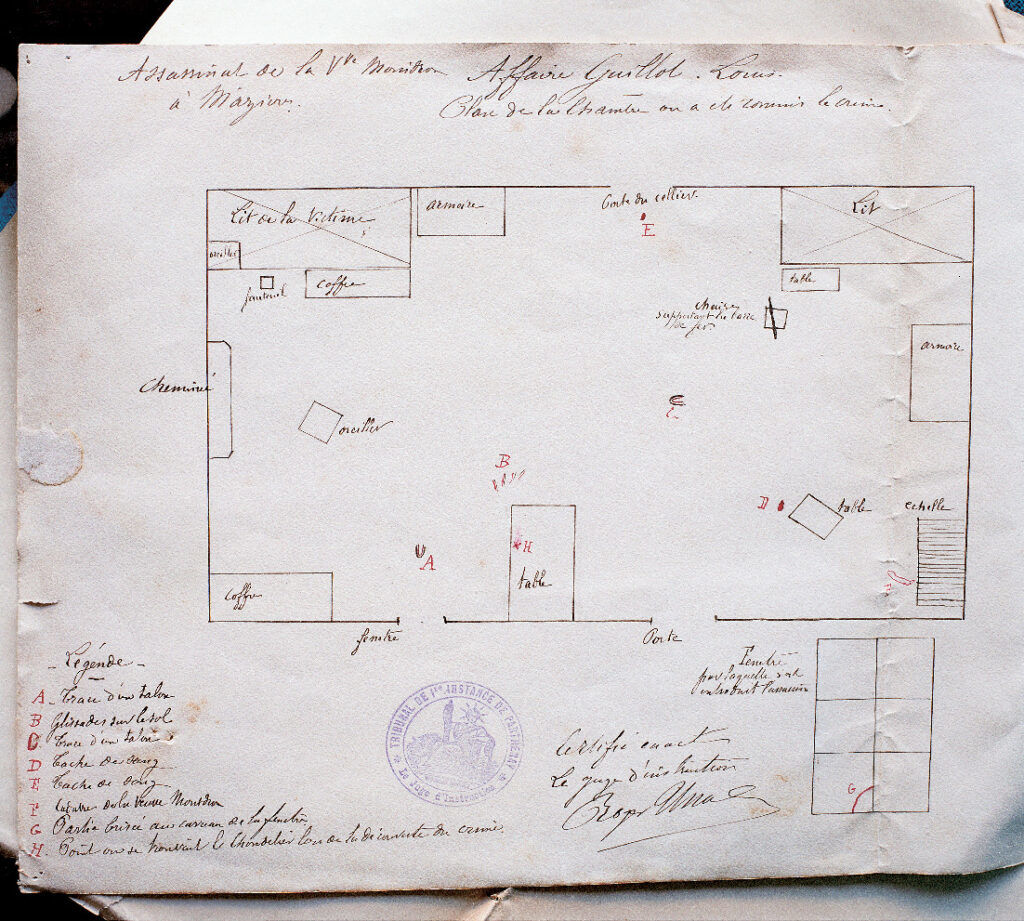 Assassinat de la Vve Monidron
Affaire Guillot. Louis.
à Mázières.
Plan de la Chambre ou a été commis le crime.
Lit de la Victime
armoire
Porte du cellier
E
Lit
oreiller
fauteuil
coffre
table
chaises
supportant la barre
de fer
armoire
Cheminée
oreiller
C
B
D
table
echelle
H
A
table
F
coffre
fenêtre
Porte
Légende
A Trace d'un talon
B Glissades sur le sol
C. Trace d'un talon
D Tache de sang
E Tache de sang
F Cadavre de la Veuve Monidron
G Partie brisée au carreau de la fenêtre
H. Point ou se trouvait le chandelier lors de la découverte du crime.
TRIBUNAL DE 1re INSTANCE DE PARTHENAY
Le Juge d'Instruction
Certifié exact
Le juge d'instruction
Fenêtre
par laquelle s'est
introduit l'assassin
G